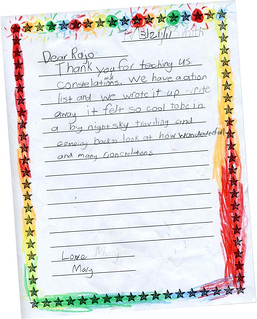 3/21/11
Dear Rojo
Thank you for teching us
Constelations. We have a ation
list and we wrote it up write
away it felt so cool to be in
a big night sky traviling and
comeing back look at how wonderful
and many Concretations
Love
Mary